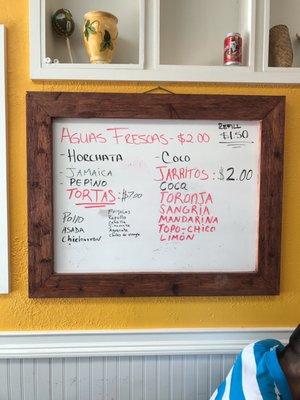 AGUAS FRESCAS - $2.00
REFILL
$1.50
- HORCHATA
- COCO
- JAMAICA
- PEPINO
JARRITOS: $2.00
COCO
TORTAS: $7.00
TORONJA
SANGRIA
MANDARINA
TOPO-CHICO
LIMÓN
POLLO
ASADA
Chicharron
Repollo
Cebolla
Aguacate
Chiles de vinagre
$1.50